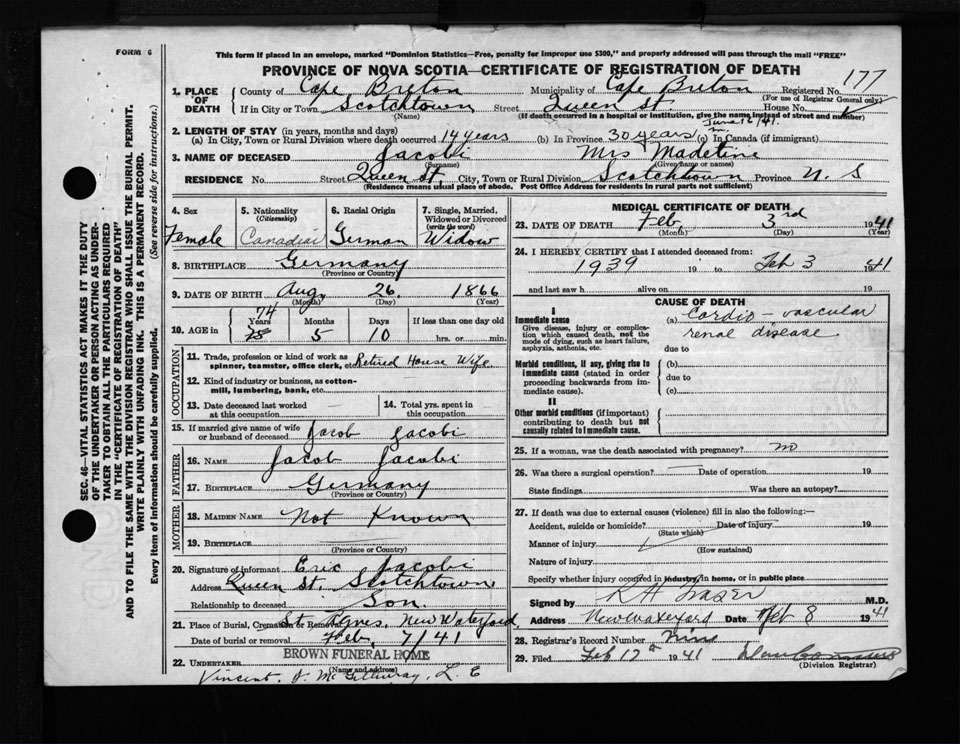 FORM 6
This form if placed in an envelope, marked "Dominion Statistics—Free, penalty for improper use $300," and properly addressed will pass through the mail "FREE"
PROVINCE OF NOVA SCOTIA—CERTIFICATE OF REGISTRATION OF DEATH
177
1. PLACE OF DEATH
County of Cape Breton Municipality of Cape Breton Registered No.
(For use of Registrar General only)
If in City or Town Scotchtown Street Queen St House No.
(Name) (If death occurred in a hospital or institution, give the name instead of street and number)
2. LENGTH OF STAY (in years, months and days)
(a) In City, Town or Rural Division where death occurred 14 years (b) In Province 30 years (c) In Canada (if immigrant)
3. NAME OF DECEASED Jacobi Mrs Madeline
(Surname) (Given name or names)
RESIDENCE No. Street Queen St. City, Town or Rural Division Scotchtown Province N. S
(Residence means usual place of abode. Post Office Address for residents in rural parts not sufficient)
SEC. 46—VITAL STATISTICS ACT MAKES IT THE DUTY
OF THE UNDERTAKER OR PERSON ACTING AS UNDER-
TAKER TO OBTAIN ALL THE PARTICULARS REQUIRED
IN THE "CERTIFICATE OF REGISTRATION OF DEATH"
AND TO FILE THE SAME WITH THE DIVISION REGISTRAR WHO SHALL ISSUE THE BURIAL PERMIT.
WRITE PLAINLY WITH UNFADING INK. THIS IS A PERMANENT RECORD.
Every item of information should be carefully supplied. (See reverse side for instructions.)
4. Sex 5. Nationality (Citizenship) 6. Racial Origin 7. Single, Married, Widowed or Divorced (write the word)
Female Canadian German Widow
8. BIRTHPLACE Germany
(Province or Country)
9. DATE OF BIRTH Aug 26 1866
(Month) (Day) (Year)
74
10. AGE in Years Months Days If less than one day old
75 5 10 hrs. or min.
OCCUPATION
11. Trade, profession or kind of work as spinner, teamster, office clerk, etc. Retired House Wife
12. Kind of industry or business, as cotton-mill, lumbering, bank, etc.
13. Date deceased last worked at this occupation 14. Total yrs. spent in this occupation
15. If married give name of wife or husband of deceased Jacob Jacobi
FATHER
16. NAME Jacob Jacobi
17. BIRTHPLACE Germany
(Province or Country)
MOTHER
18. MAIDEN NAME Not Known
19. BIRTHPLACE
(Province or Country)
20. Signature of informant Eric Jacobi
Address Queen St. Scotchtown
Relationship to deceased Son.
21. Place of Burial, Cremation or Removal St Agnes, New Waterford
Date of burial or removal Feb. 7/41
BROWN FUNERAL HOME
22. UNDERTAKER
(Name and address)
Vincent J. McGillivray, L. E
MEDICAL CERTIFICATE OF DEATH
23. DATE OF DEATH Feb, 3rd 1941
(Month) (Day) (Year)
24. I HEREBY CERTIFY that I attended deceased from:
1939 19 to Feb 3 1941
and last saw h alive on 19
CAUSE OF DEATH
I
Immediate cause (a) Cardio-vascular
Give disease, injury or complication which caused death, not the mode of dying, such as heart failure, asphyxia, asthenia, etc.
renal disease
due to
Morbid conditions, if any, giving rise to immediate cause (stated in order proceeding backwards from immediate cause).
(b)
due to
(c)
II
Other morbid conditions (if important) contributing to death but not causally related to immediate cause.
25. If a woman, was the death associated with pregnancy? no
26. Was there a surgical operation? Date of operation 19
State findings Was there an autopsy?
27. If death was due to external causes (violence) fill in also the following:—
Accident, suicide or homicide? Date of injury 19
(State which)
Manner of injury
(How sustained)
Nature of injury
Specify whether injury occurred in industry, in home, or in public place
Signed by R H Fraser M.D.
Address New Waterford Date Feb 8 1941
28. Registrar's Record Number Nine
29. Filed Feb 12th 1941
(Division Registrar)